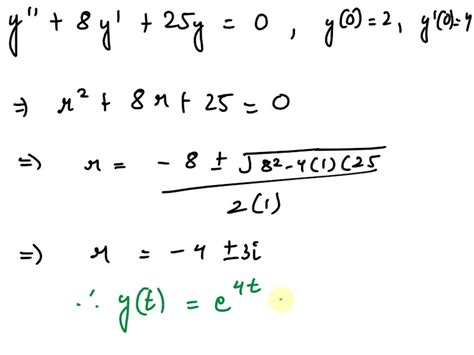 y'' + 8y' + 25y = 0 , y(0)=2, y'(0)=4
⇒ r² + 8r + 25 = 0
⇒ r = (-8 ± √8²-4(1)(25) / 2(1)
⇒ r = -4 ±3i
∴ y(t) = e^4t